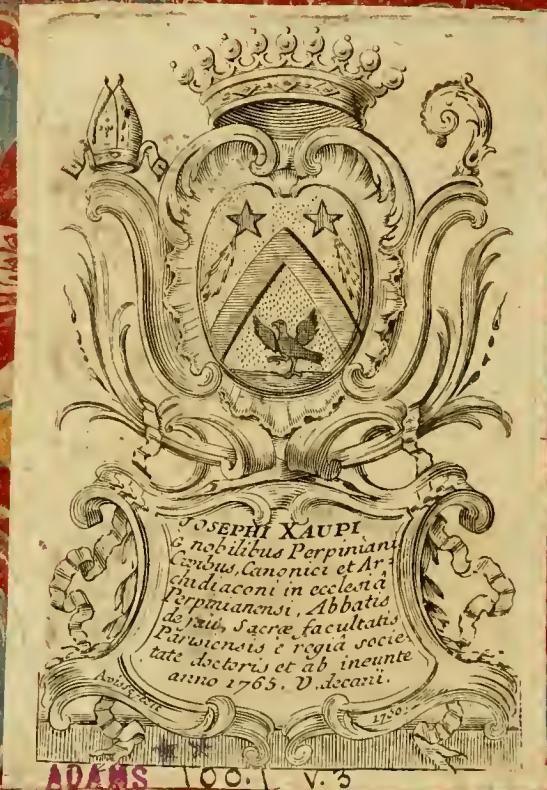 JOSEPHI XAUPI
è nobilibus Perpiniani
Civibus, Canonici et Ar-
chidiaconi in ecclesiâ
Perpinianensi, Abbatis
de Jau, Sacræ facultatis
Parisiensis è regiâ socie-
tate doctoris et ab ineunte
anno 1765. V. decani.
ADAMS 100.1 V.3